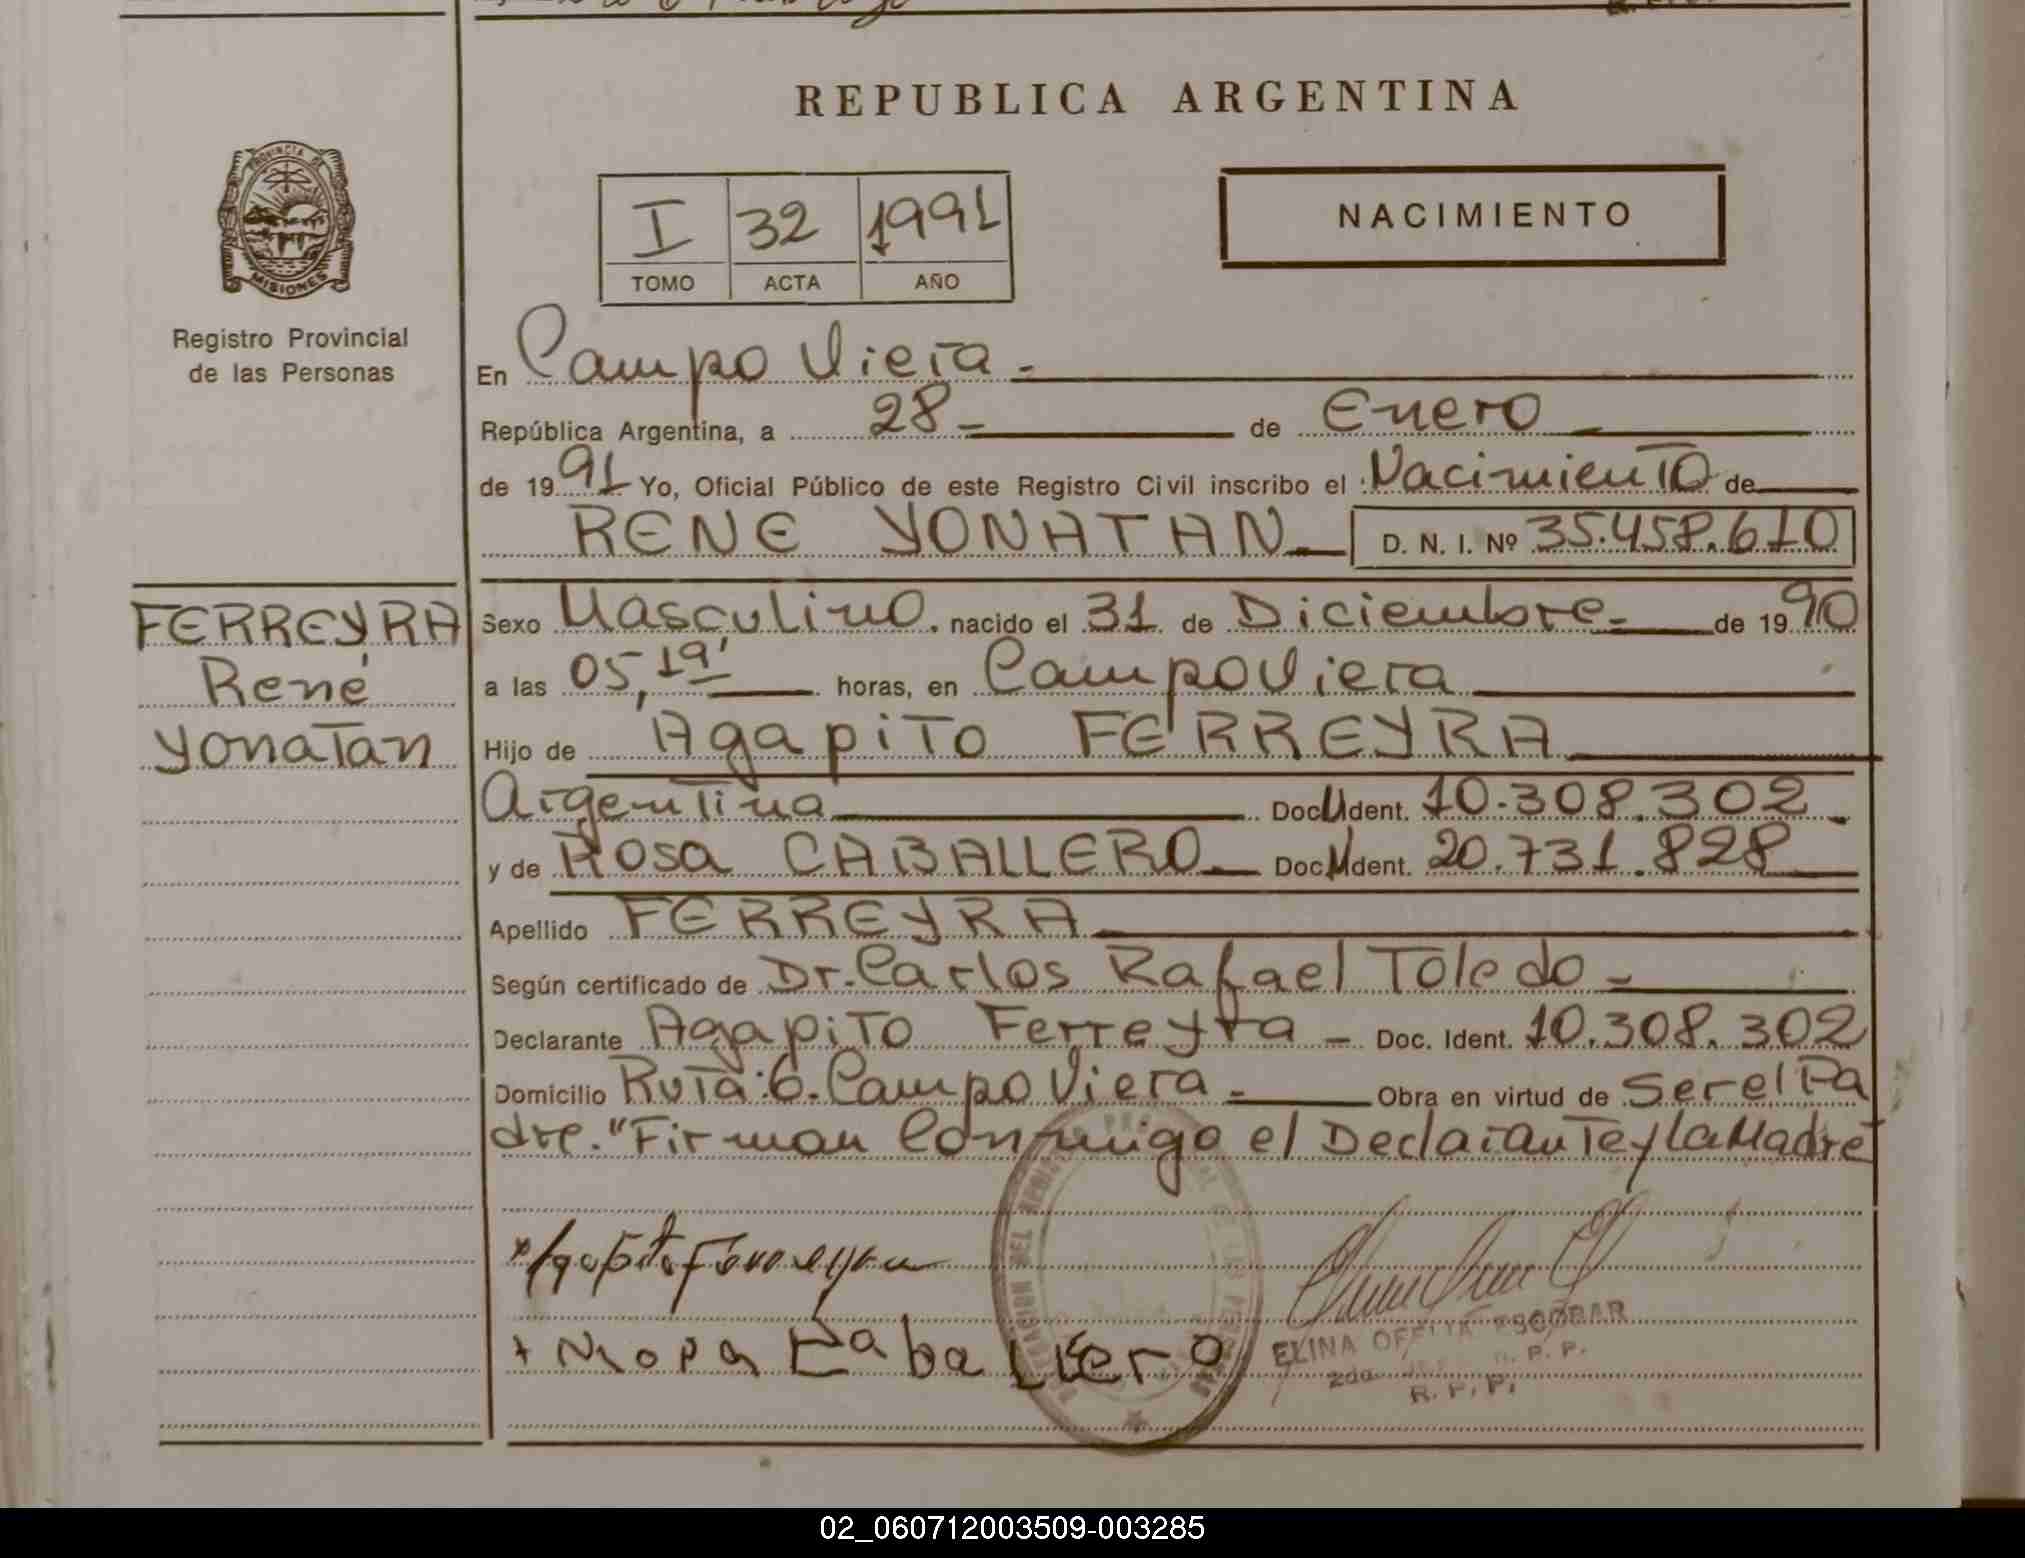 REPUBLICA ARGENTINA
PROVINCIA DE
MISIONES
Registro Provincial
de las Personas
I 32 1991
TOMO ACTA AÑO
NACIMIENTO
En Campo Viera -
República Argentina, a 28 - de Enero
de 1991 Yo, Oficial Público de este Registro Civil inscribo el Nacimiento de
RENE YONATAN D. N. I. Nº 35.458.610
FERREYRA
René
Yonatan
Sexo Masculino. nacido el 31 de Diciembre - de 1990
a las 05,19' horas, en Campo Viera
Hijo de Agapito FERREYRA
Argentina Doc. Ident. 10.308.302
y de Rosa CABALLERO Doc. Ident. 20.731.828
Apellido FERREYRA
Según certificado de Dr. Carlos Rafael Toledo -
Declarante Agapito Ferreyra - Doc. Ident. 10.308.302
Domicilio Ruta: 6. Campo Viera - Obra en virtud de Ser el Pa
dre. "Firman Conmigo el Declarante y La Madre"
Agapito Ferreyra
+ Rosa Caballero
ELINA OFELIA ESCOBAR
R. P. P.
02_060712003509-003285